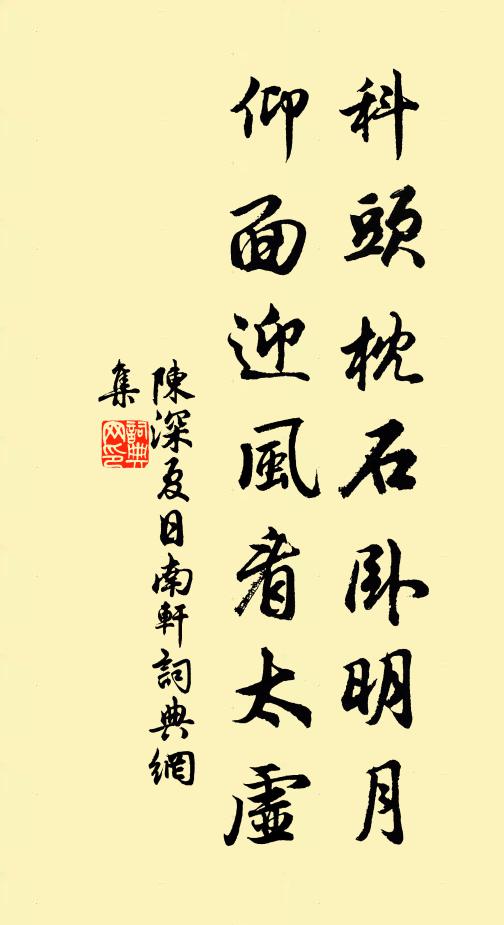 科頭枕石卧明月
仰面迎風看太虛
陳深夏日南軒詞典網
集
詞典网印